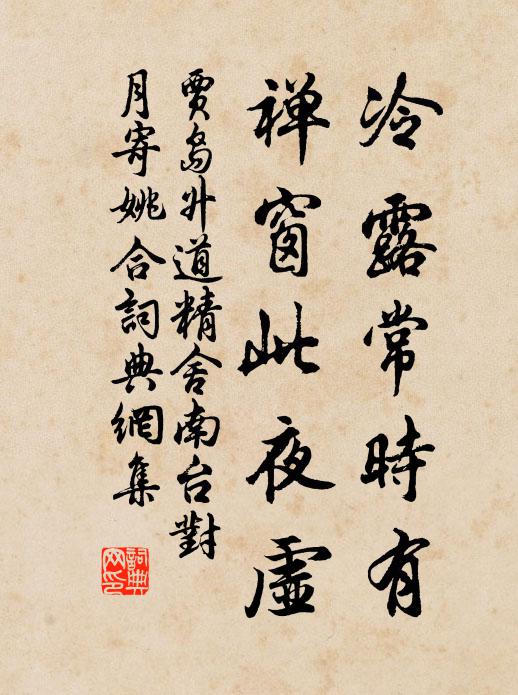 冷露常時有
禅窗此夜虛
賈島升道精舍南台對
月寄姚合詞典網集
詞典
网印